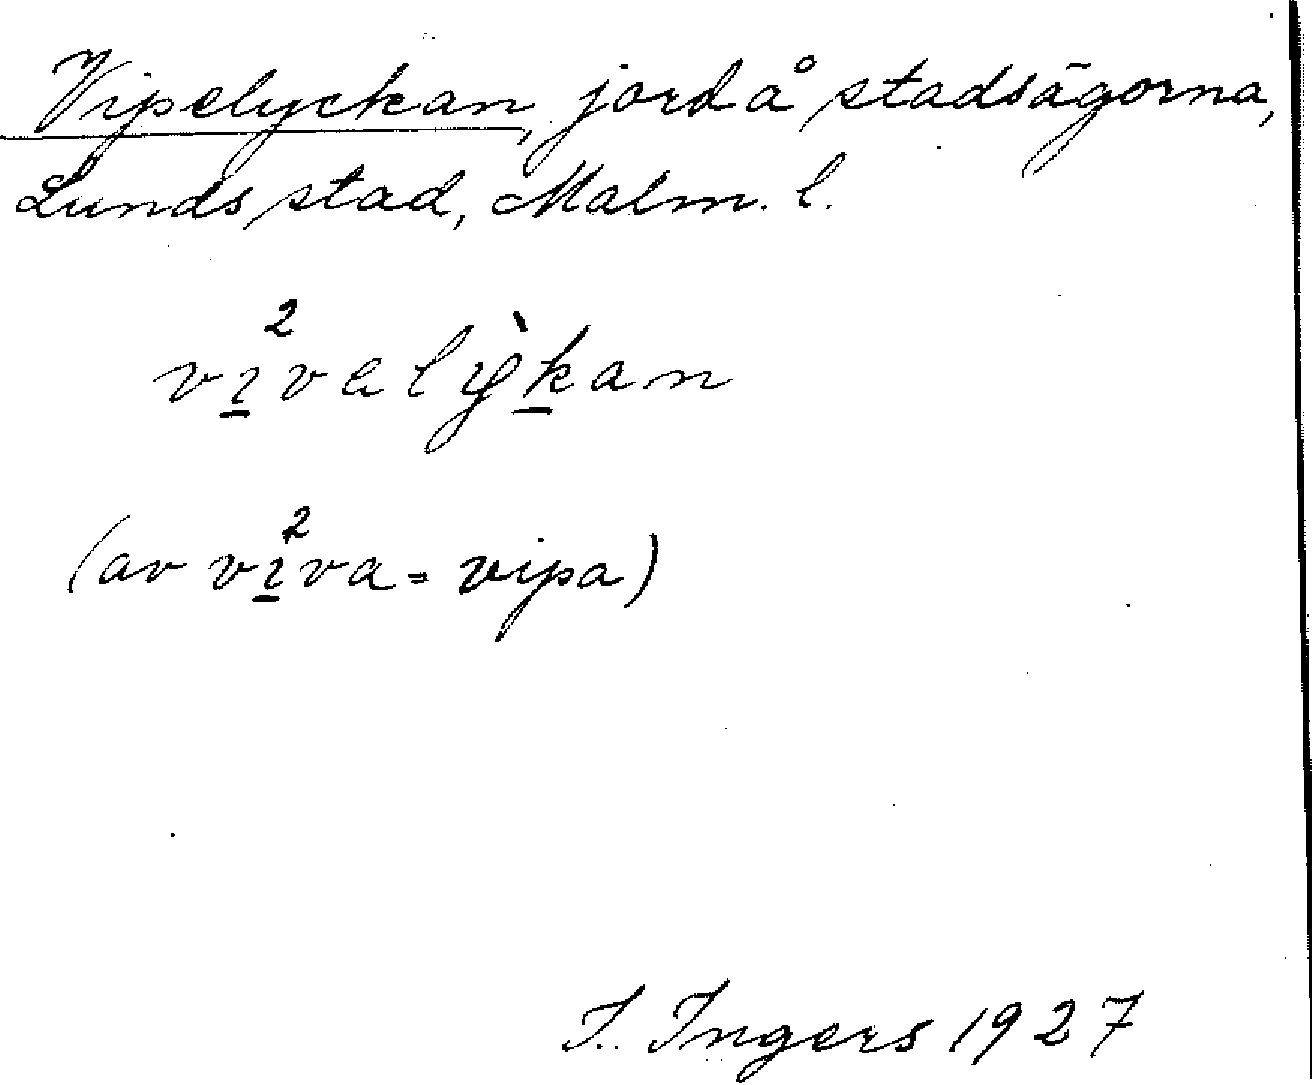 Vipelyckan, jord å stadsägorna,
Lunds stad, Malm. l.
vı̲²vəlỳk̲an
(av vı̲²va = vipa)
I. Ingers 1927